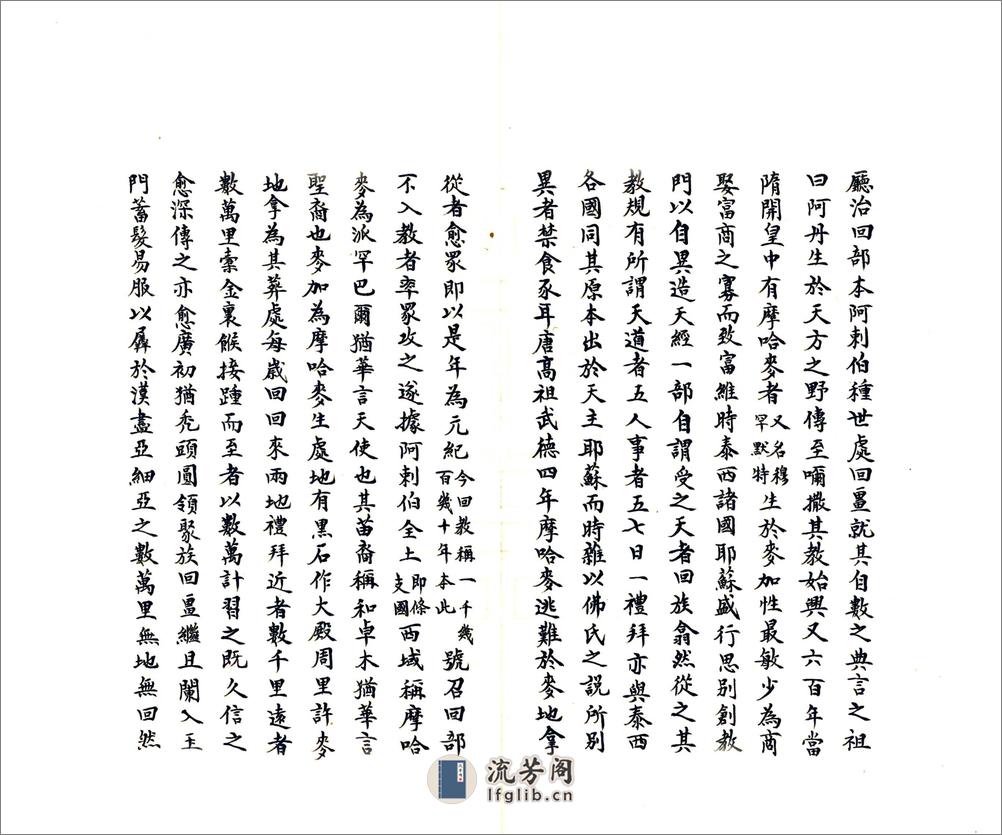 廳治回部本阿剌伯種世處回畺就其自數之典言之祖
曰阿丹生於天方之野傳至嘀撒其教始興又六百年當
隋開皇中有摩哈麥者又名穆罕默特生於麥加性最敏少為商
娶富商之寡而致富維時泰西諸國耶蘇盛行思别創教
門以自異造天經一部自謂受之天者回族翕然從之其
教規有所謂天道者五人事者五七日一禮拜亦與泰西
各國同其原本出於天主耶蘇而時雜以佛氏之説所别
異者禁食豕耳唐高祖武徳四年摩哈麥逃難於麥地拿
從者愈眾即以是年為元紀今回教稱一千幾百幾十年本此號召回部
不入教者率眾攻之遂據阿剌伯全土即條支國西域稱摩哈
麥為派罕巴爾猶華言天使也其苗裔稱和卓木猶華言
聖裔也麥加為摩哈麥生處地有黑石作大殿周里許麥
地拿為其葬處每歲回回來兩地禮拜近者數千里遠者
數萬里橐金裹餱接踵而至者以數萬計習之既久信之
愈深傳之亦愈廣初猶禿頭圓領聚族回畺繼且闌入玉
門蓄髮易服以孱於漢盡亞細亞之數萬里無地無回然
流芳阁
lfglib.cn